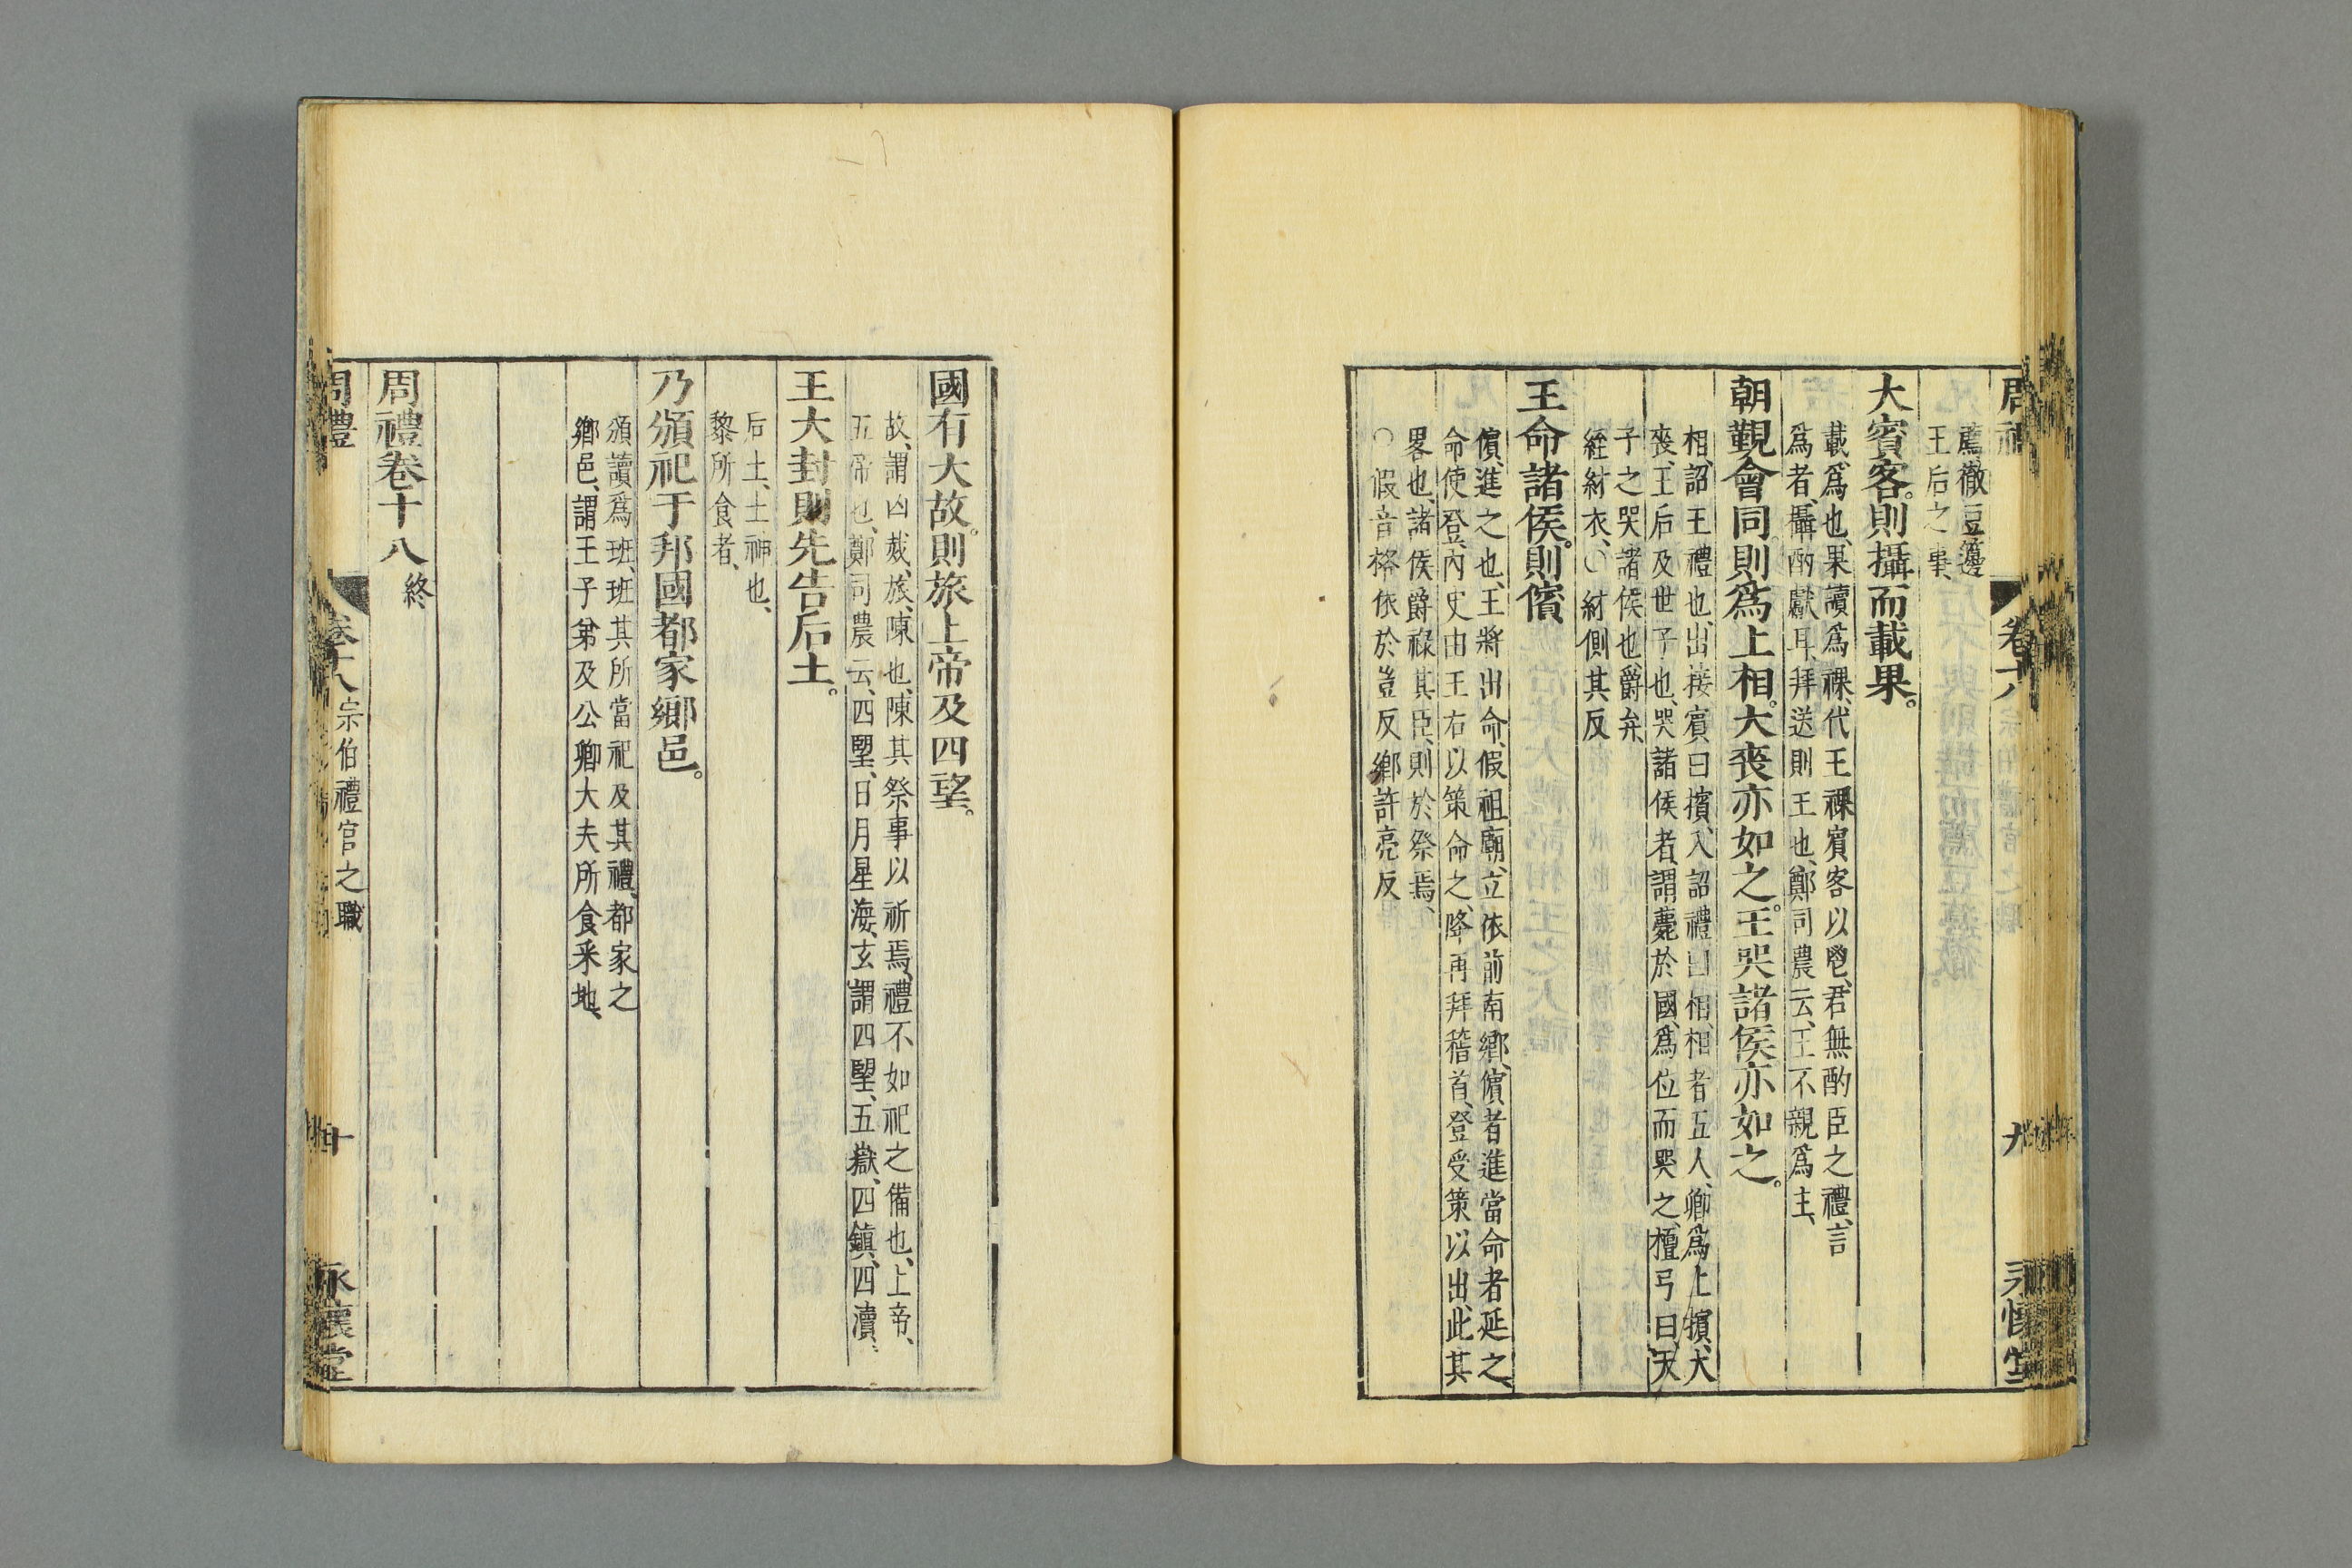 周禮
卷十八
九
薦徹豆籩
王后之事、
大賓客。則攝而載果。
載、爲也、果讀爲祼、代王祼賓客以鬯、君無酌臣之禮、言
爲者、攝酌獻耳、拜送則王也、鄭司農云、王不親爲主、
朝覲會同。則爲上相。大喪亦如之。王哭諸侯亦如之。
相、詔王禮也、出接賓曰擯、入詔禮曰相、相者五人、卿爲上擯、大
喪、王后及世子也、哭諸侯者、謂薨於國、爲位而哭之、檀弓曰、天
子之哭諸侯也、爵弁
絰紂衣、○紂側其反
王命諸侯。則儐
儐、進之也、王將出命、假祖廟、立依前南鄉、儐者進當命者延之、
命使登、內史由王右以策命之、降再拜稽首、登受策以出、此其
畧也、諸侯爵祿其臣、則於祭焉、
○假音格依於豈反鄉許亮反
國有大故。則旅上帝及四望。
故、謂凶烖、旅、陳也、陳其祭事以祈焉、禮不如祀之備也、上帝、
五帝也、鄭司農云、四望、日月星海、玄謂四望、五嶽、四鎮、四瀆、
王大封則先告后土。
后土、土神也、
黎所食者、
乃頒祀于邦國都家鄉邑。
頒讀爲班、班其所當祀及其禮、都家之
鄉邑、謂王子弟及公卿大夫所食采地、
周禮卷十八 終
周禮
卷十八 宗伯禮官之職
十
永懷堂